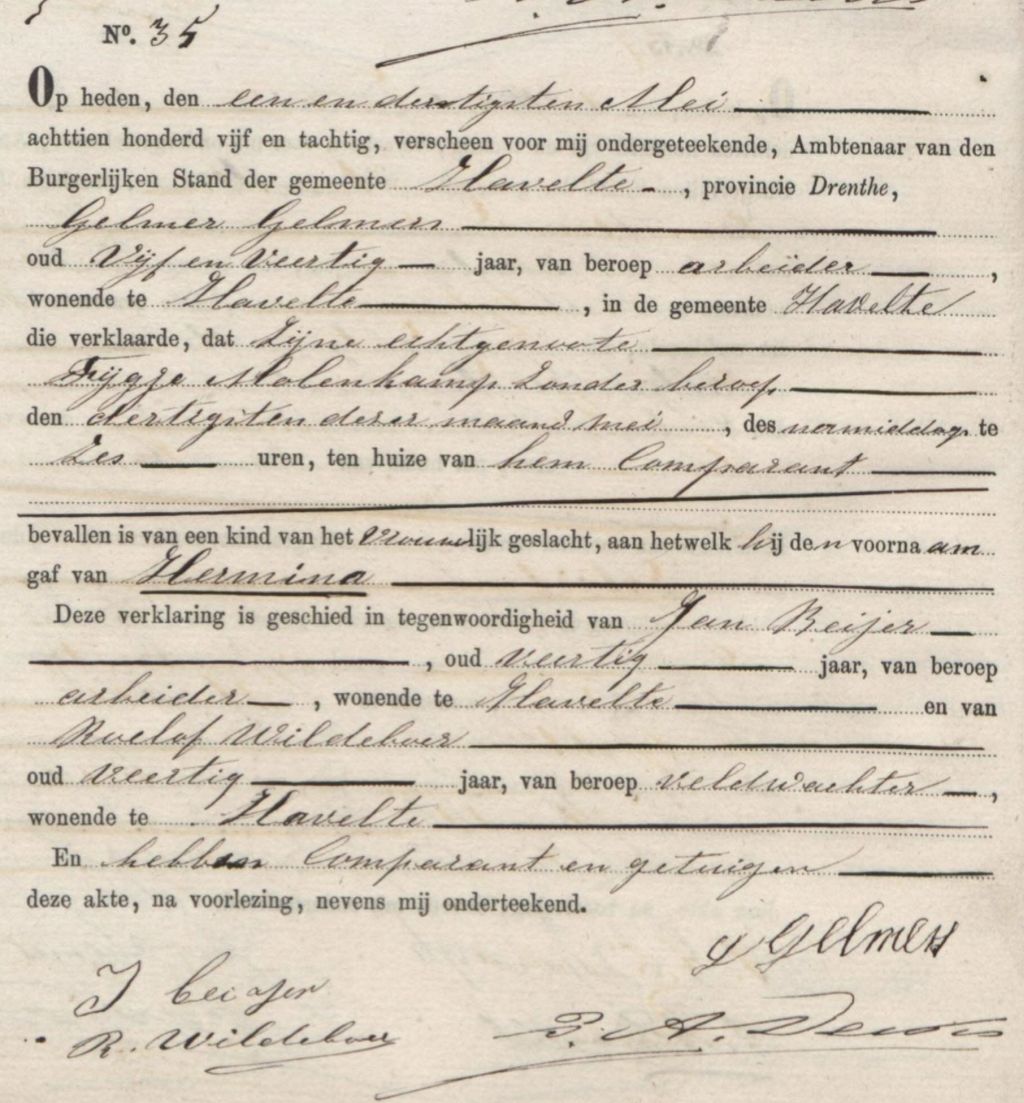 No. 35
Op heden, den een en dertigsten Mei
achttien honderd vijf en tachtig, verscheen voor mij ondergeteekende, Ambtenaar van den
Burgerlijken Stand der gemeente Havelte, provincie Drenthe,
Gelmer Gelmers
oud Vijf en Veertig jaar, van beroep arbeider,
wonende te Havelte, in de gemeente Havelte
die verklaarde, dat Zijne echtgenoote
Fijgje Molenkamp Zonder beroep
den dertigsten dezer maand mei, des voormiddags te
Zes uren, ten huize van hem Comparant
bevallen is van een kind van het Vrouwelijk geslacht, aan hetwelk hij den voornaam
gaf van Hermina
Deze verklaring is geschied in tegenwoordigheid van Jan Beijer
, oud veertig jaar, van beroep
arbeider, wonende te Havelte en van
Roelof Wildeboer
oud Veertig jaar, van beroep veldwachter,
wonende te Havelte
En hebben Comparant en getuigen
deze akte, na voorlezing, nevens mij onderteekend.
G Gelmers
J beijer
R. Wildeboer